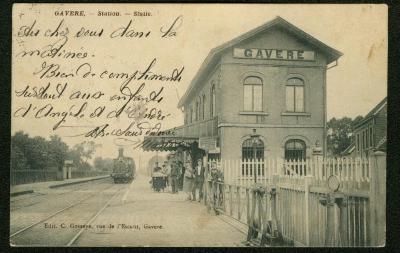 GAVERE. - Station. - Statie.
chez vous dans la
matinée.
Bien de compliments
surtout aux enfants
d'Angèle et d'Emire
GAVERE
Edit. C. Goeteye, rue de l'Escaut, Gavere.